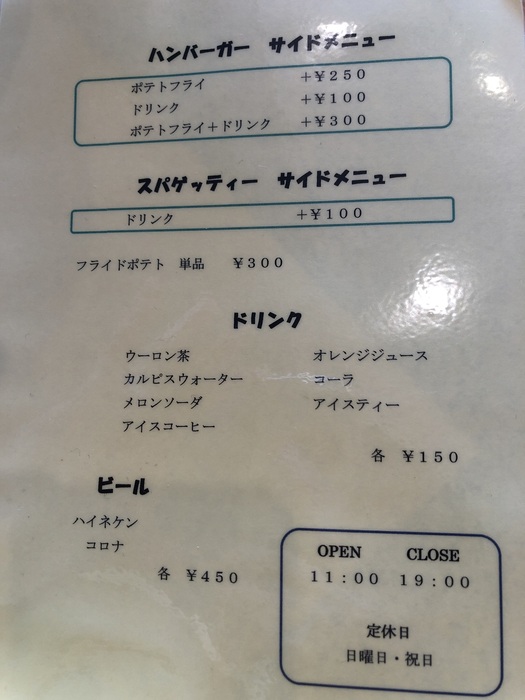 ハンバーガー サイドメニュー
ポテトフライ +¥250
ドリンク +¥100
ポテトフライ+ドリンク +¥300
スパゲッティー サイドメニュー
ドリンク +¥100
フライドポテト 単品 ¥300
ドリンク
ウーロン茶 オレンジジュース
カルピスウォーター コーラ
メロンソーダ アイスティー
アイスコーヒー
各 ¥150
ビール
ハイネケン
コロナ
各 ¥450
OPEN CLOSE
11:00 19:00
定休日
日曜日・祝日